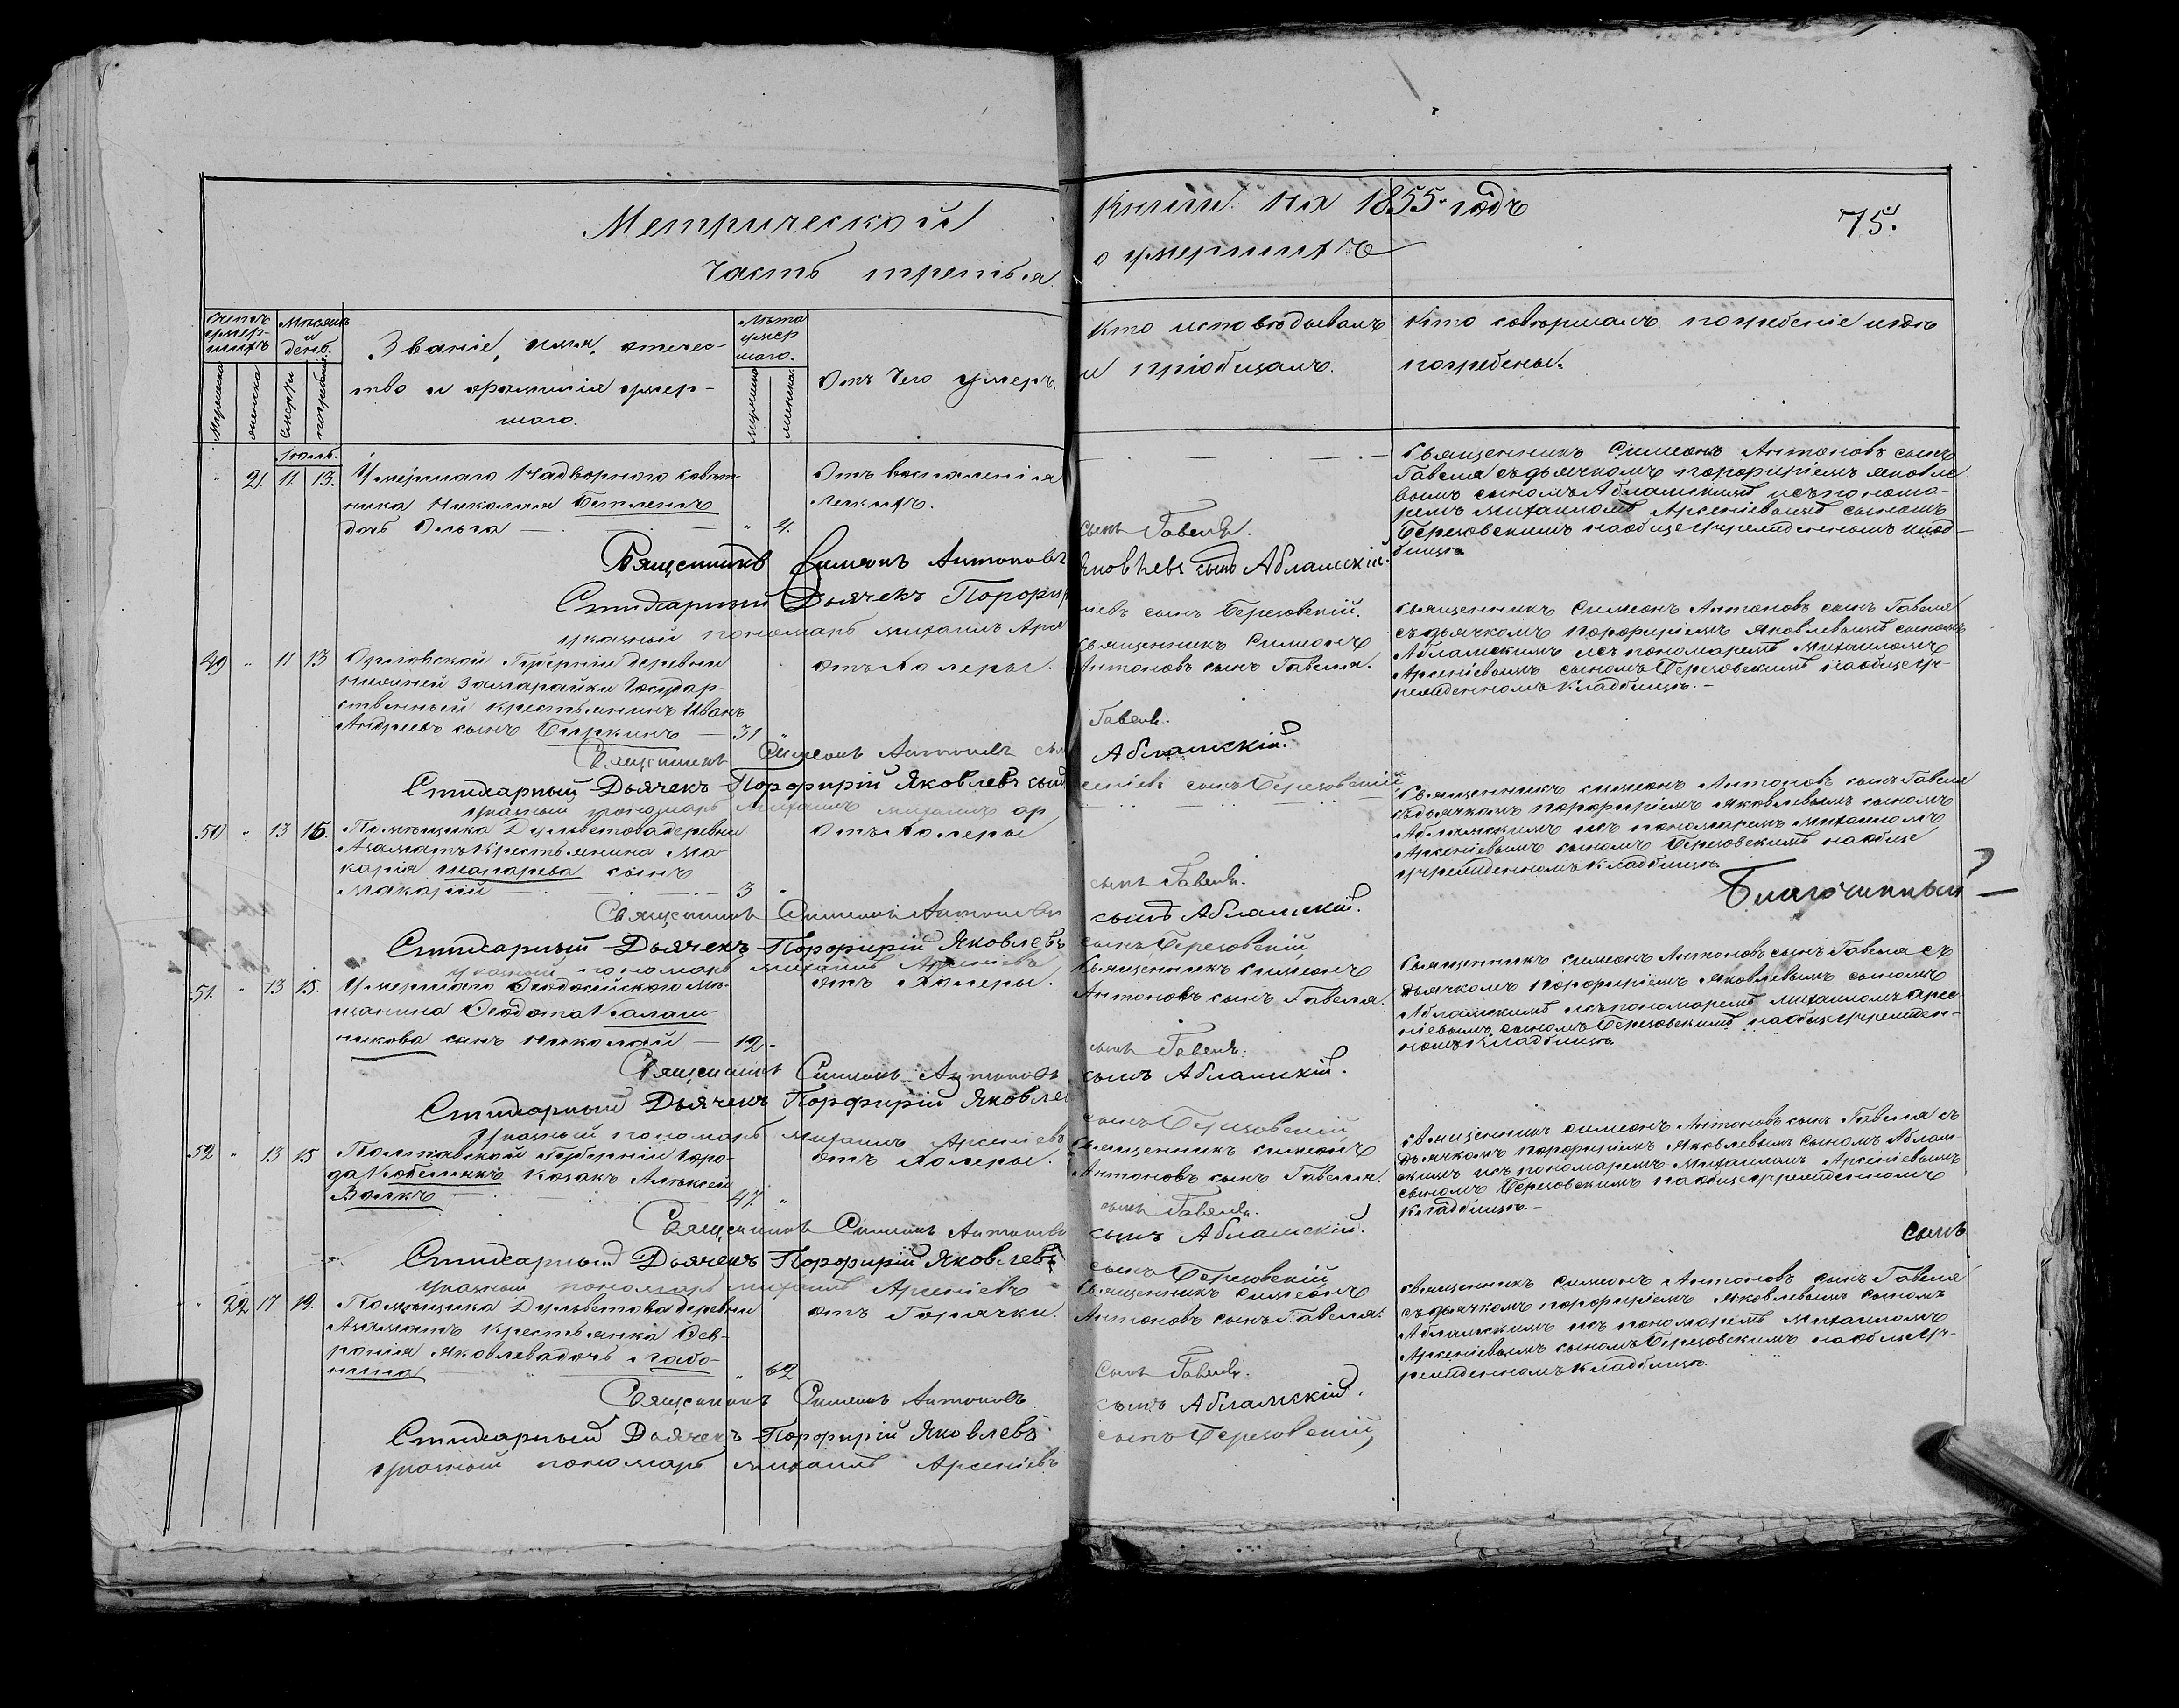 Метрической книги на 1855 годъ
75.
Часть третья о умершихъ
Счетъ умер-шихъ
Мужеска
женска
Мѣсяцъ и день.
смерти
погребенія
Званіе, имя, отечес-
тво и фамилія умер-
шаго.
Лѣта умер шаго.
мужеска
женска
Отъ чего умеръ.
Кто исповѣдывалъ
и пріобщалъ.
Кто совершалъ погребеніе и гдѣ
погребены.
Іюль.
" 21. 11. 13. Умершаго Надворнаго совѣт-
ника Николая
дочь Ольга — " 4.
Отъ воспаленія
легкихъ.
Священникъ Симеонъ Антоновъ сынъ
Гавеля съ дьячкомъ Порфиріемъ Яковле
вымъ сыномъ Абламскимъ и съ понома-
ремъ Михаиломъ Арсеніевымъ сыномъ
Березовскимъ на общеучрежденномъ клад-
бищѣ.
Священникъ Симеонъ Антоновъ сынъ Гавеля.
Стихарный Дьячекъ Порфирій Яковлевъ сынъ Абламскій.
указный пономарь Михаилъ Арсеніевъ сынъ Березовскій.
49 " 11 13 Орловской Губерніи деревни
нижней Замарайки Государ-
ственный крестьянинъ Иванъ
Андреевъ сынъ Биркинъ — 31 "
отъ Холеры.
Священникъ Симеонъ
Антоновъ сынъ Гавеля.
Священникъ Симеонъ Антоновъ сынъ Гавеля
съ дьячкомъ Порфиріемъ Яковлевымъ сыномъ
Абламскимъ и съ пономаремъ Михаиломъ
Арсеніевымъ сыномъ Березовскимъ на общеуч-
режденномъ кладбищѣ. —
Священникъ Симеонъ Антоновъ сынъ Гавеля.
Стихарный Дьячекъ Порфирій Яковлевъ сынъ Абламскій.
указный пономарь Михаилъ Михаилъ Арсеніевъ сынъ Березовскій
50 " 13 15. Помѣщика Дульветова деревни
Азаматъ Крестьянина Ма-
карія сынъ
Макарій — 3 "
Отъ Холеры
Священникъ Симеонъ Антоновъ сынъ Гавеля
съ дьячкомъ Порфиріемъ Яковлевымъ сыномъ
Абламскимъ и съ пономаремъ Михаиломъ
Арсеніевымъ сыномъ Березовскимъ на обще
учрежденномъ кладбищѣ.
Благочинный —
Священникъ Симеонъ Антоновъ сынъ Гавеля.
Стихарный Дьячекъ Порфирій Яковлевъ сынъ Абламскій.
указный пономарь Михаилъ Арсеніевъ сынъ Березовскій
51. " 13 15. Умершаго Ѳеодосійскаго мѣ-
щанина Ѳеодота Калаш-
никова сынъ Николай — 12. "
отъ Холеры.
Священникъ Симеонъ
Антоновъ сынъ Гавеля.
Священникъ Симеонъ Антоновъ сынъ Гавеля съ
дьячкомъ Порфиріемъ Яковлевымъ сыномъ
Абламскимъ и съ пономаремъ Михаиломъ Арсе-
ніевымъ сыномъ Березовскимъ на общеучрежден-
номъ кладбищѣ.
Священникъ Симеонъ Антоновъ сынъ Гавеля.
Стихарный Дьячекъ Порфирій Яковлевъ сынъ Абламскій.
указный пономарь Михаилъ Арсеніевъ сынъ Березовскій
52 " 13 15 Полтавской Губерніи горо-
да Кобелякъ Козакъ Алексей
Волкъ — 47. "
отъ Холеры.
Священникъ Симеонъ
Антоновъ сынъ Гавеля.
Священникъ Симеонъ Антоновъ сынъ Гавеля съ
дьячкомъ Порфиріемъ Яковлевымъ сыномъ Аблам-
скимъ и съ пономаремъ Михаиломъ Арсеніевымъ
сыномъ Березовскимъ на общеучрежденномъ
кладбищѣ. —
сынъ
Священникъ Симеонъ Антоновъ сынъ Гавеля.
Стихарный Дьячекъ Порфирій Яковлевъ сынъ Абламскій.
указный пономарь Михаилъ Арсеніевъ сынъ Березовскій
" 22 17 19. Помѣщика Дульветова деревни
Азаматъ Крестьянка Ѳев-
ронія Яковлева дочь
" 62
отъ Горячки.
Священникъ Симеонъ
Антоновъ сынъ Гавеля.
Священникъ Симеонъ Антоновъ сынъ Гавеля
съ дьячкомъ Порфиріемъ Яковлевымъ сыномъ
Абламскимъ и съ пономаремъ Михаиломъ
Арсеніевымъ сыномъ Березовскимъ на общеуч-
режденномъ кладбищѣ.
Священникъ Симеонъ Антоновъ Сынъ Гавеля.
Стихарный Дьячекъ Порфирій Яковлевъ сынъ Абламскій.
указный пономарь Михаилъ Арсеніевъ сынъ Березовскій